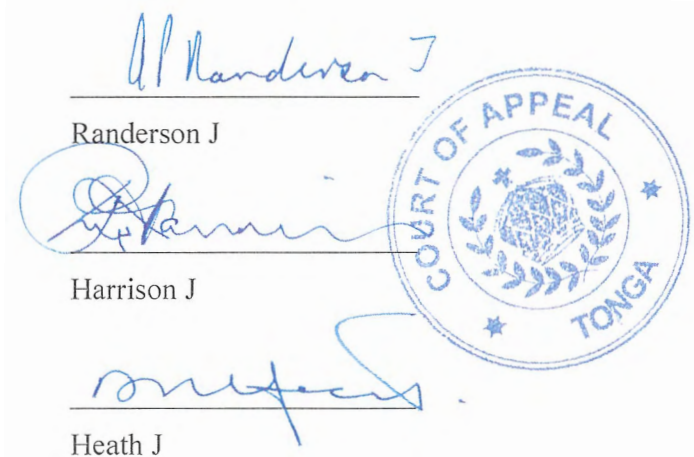 AP Randerson J
Randerson J
Harrison J
Heath J
COURT OF APPEAL
TONGA